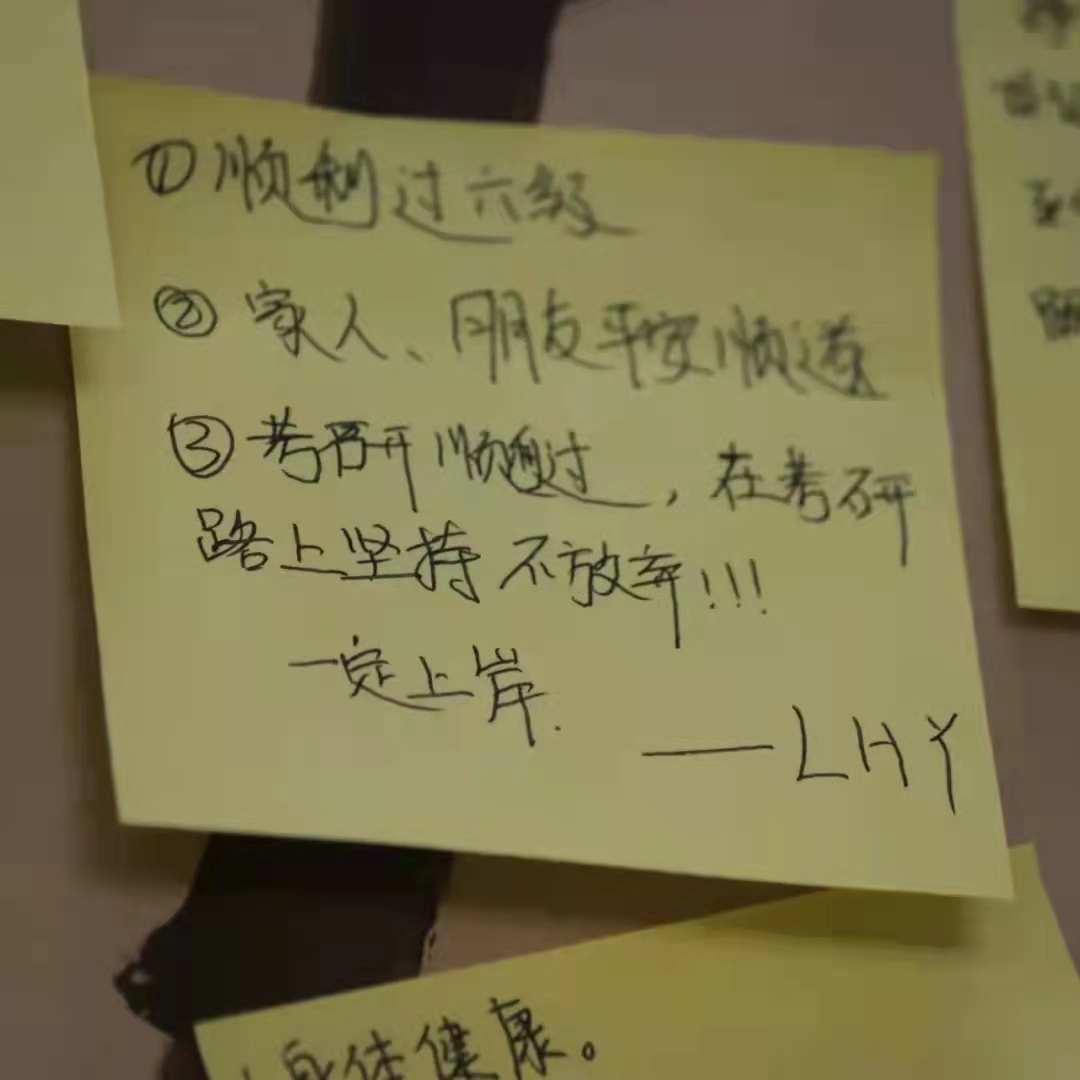 ①顺利过六级
②家人、朋友平安顺遂
③考研顺通过,在考研
路上坚持不放弃!!!
一定上岸.
——LHY
身体健康。